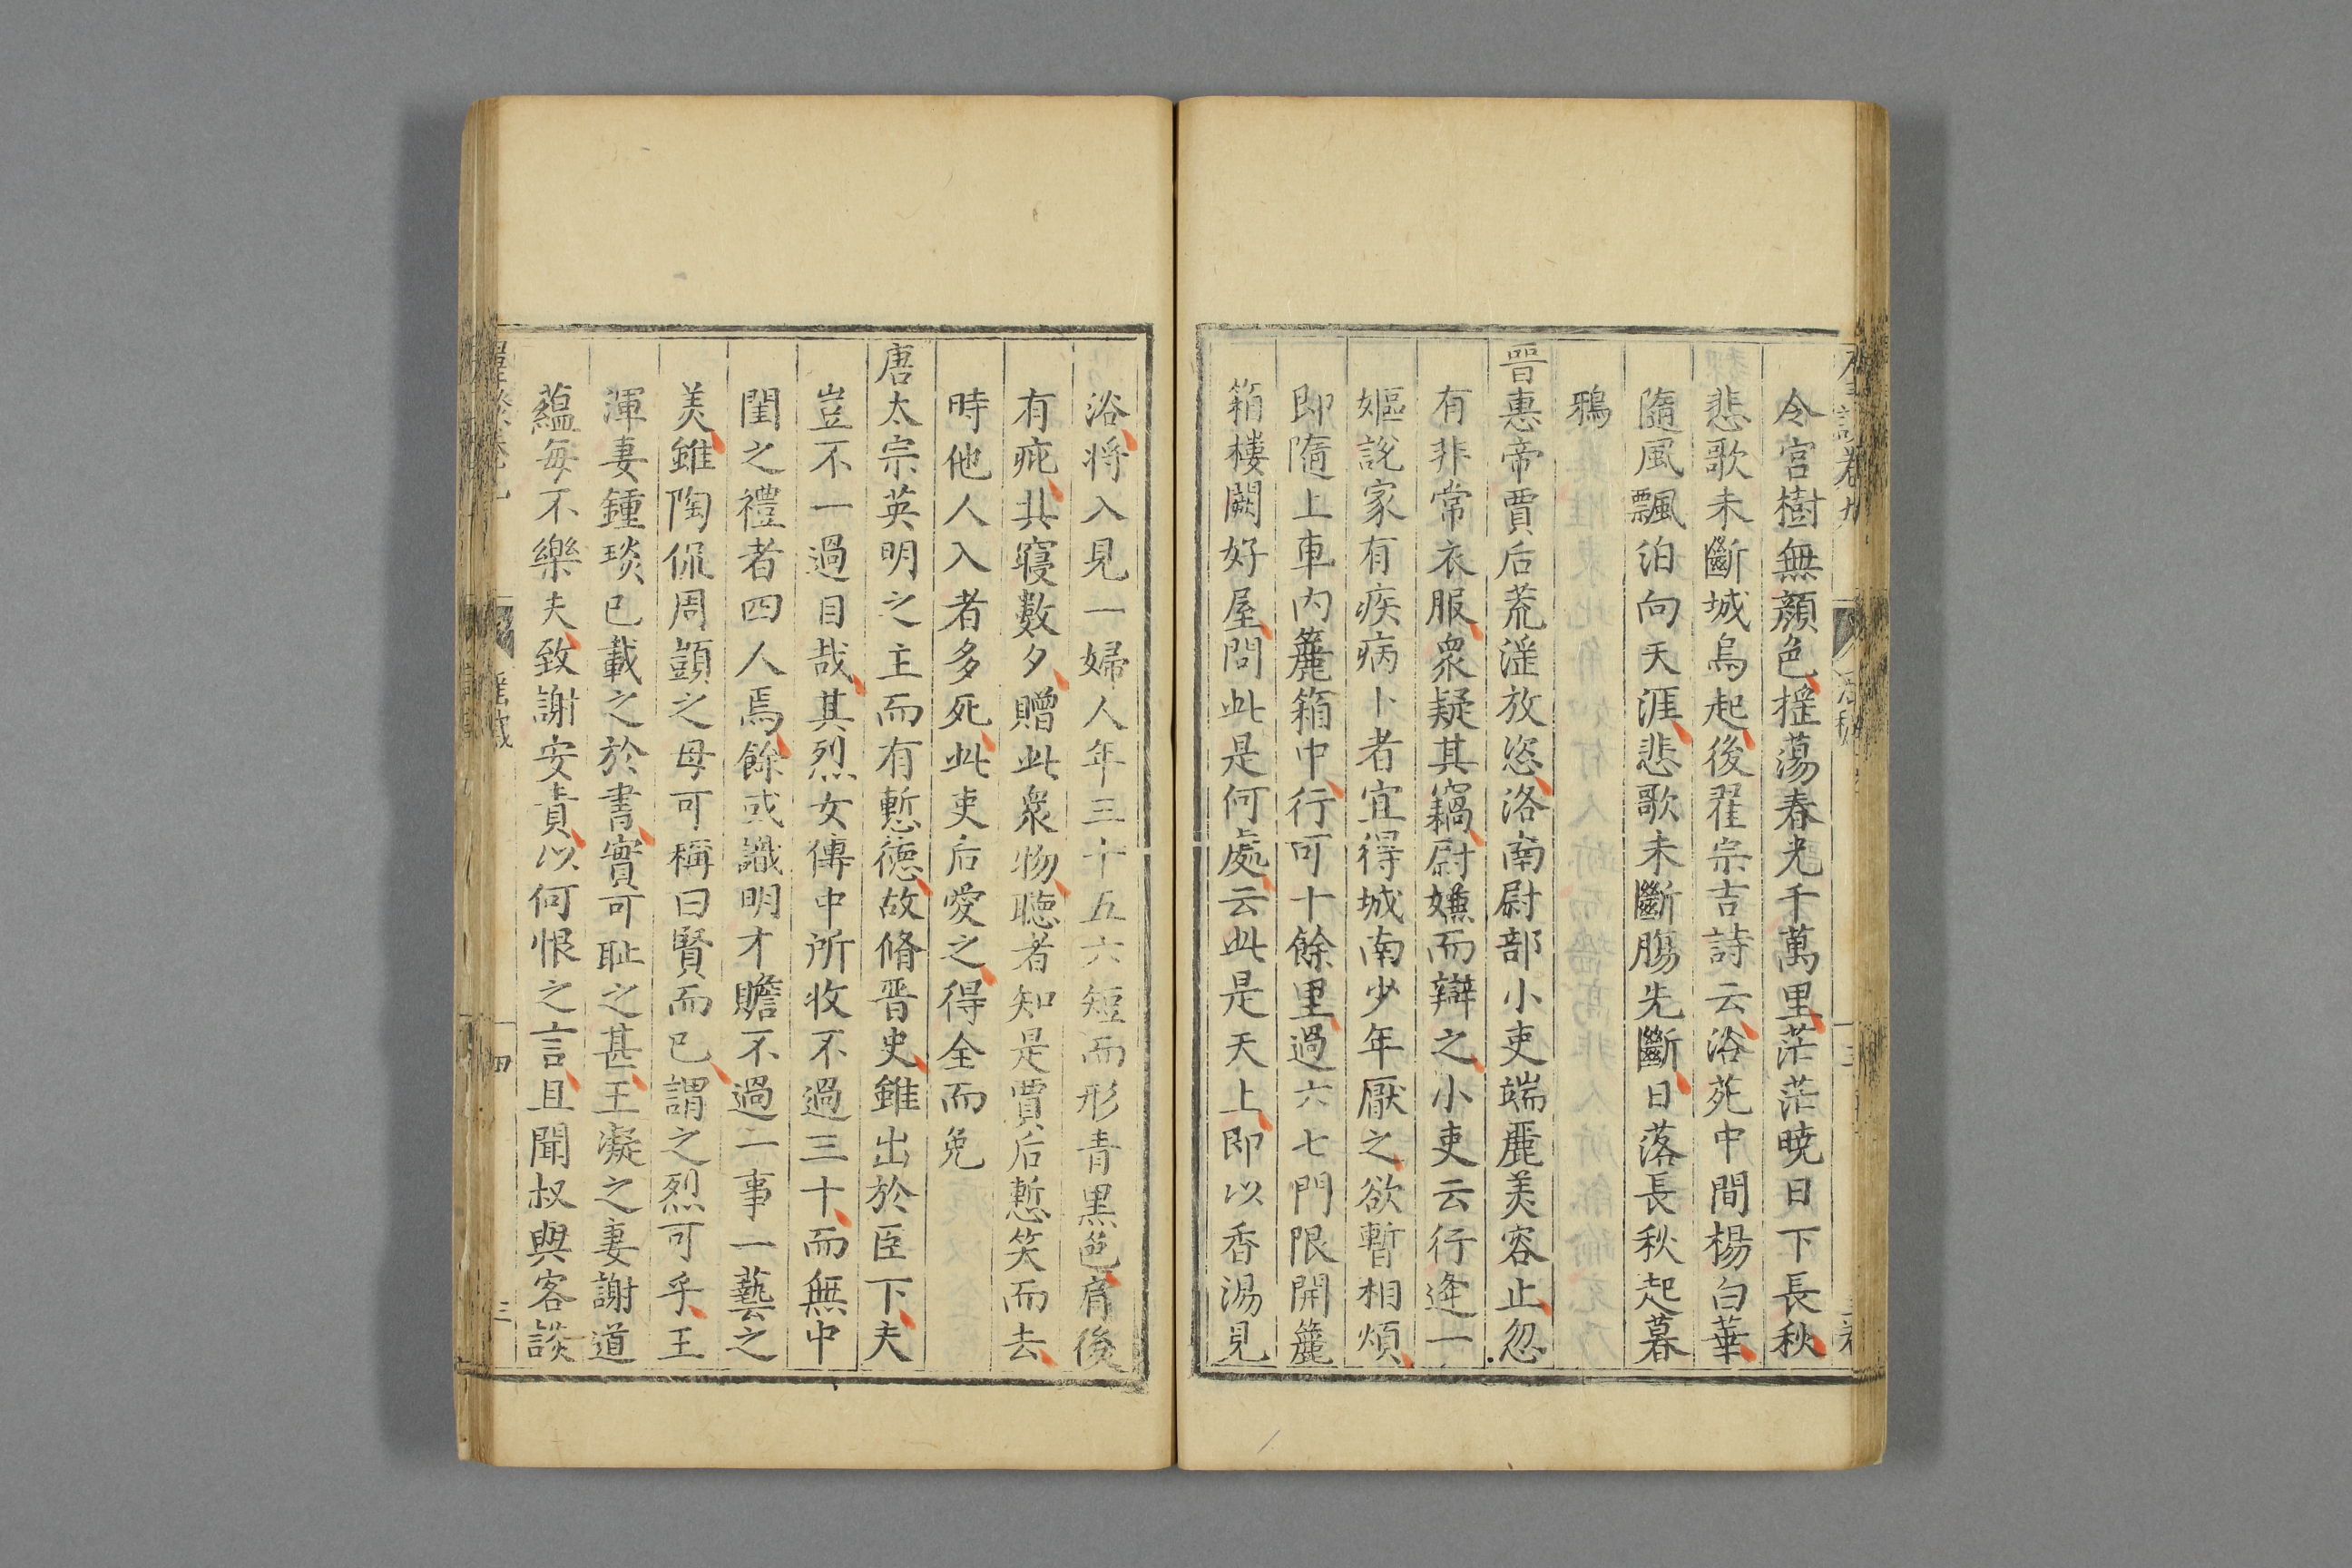 令宮樹無顏色搖蕩春光千萬里茫茫曉日下長秋
悲歌未斷城烏起後翟宗吉詩云浴苑中間楊白華
隨風飄泊向天涯悲歌未斷膓先斷日落長秋起暮
鴉
晉惠帝賈后荒淫放恣洛南尉部小吏端麗美容止忽
有非常衣服衆疑其竊尉嫌而辯之小吏云行逢一
嫗說家有疾病卜者宜得城南少年厭之欲暫相煩
即隨上車內簏箱中行可十餘里過六七門限開簏
箱樓闕好屋問此是何處云此是天上即以香湯見
浴將入見一婦人年三十五六短而形青黑色肩後
有疵共寢數夕贈此衆物聽者知是賈后慙笑而去
時他人入者多死此吏后愛之得全而免
唐太宗英明之主而有慙德故脩晉史雖出於臣下夫
豈不一過目哉其烈女傳中所收不過三十而無中
閨之禮者四人焉餘或識明才贍不過一事一藝之
美雖陶侃周顗之母可稱曰賢而已謂之烈可乎王
渾妻鍾琰已載之於書實可耻之甚王凝之妻謝道
蘊每不樂夫致謝安責以何恨之言且聞叔與客談
四